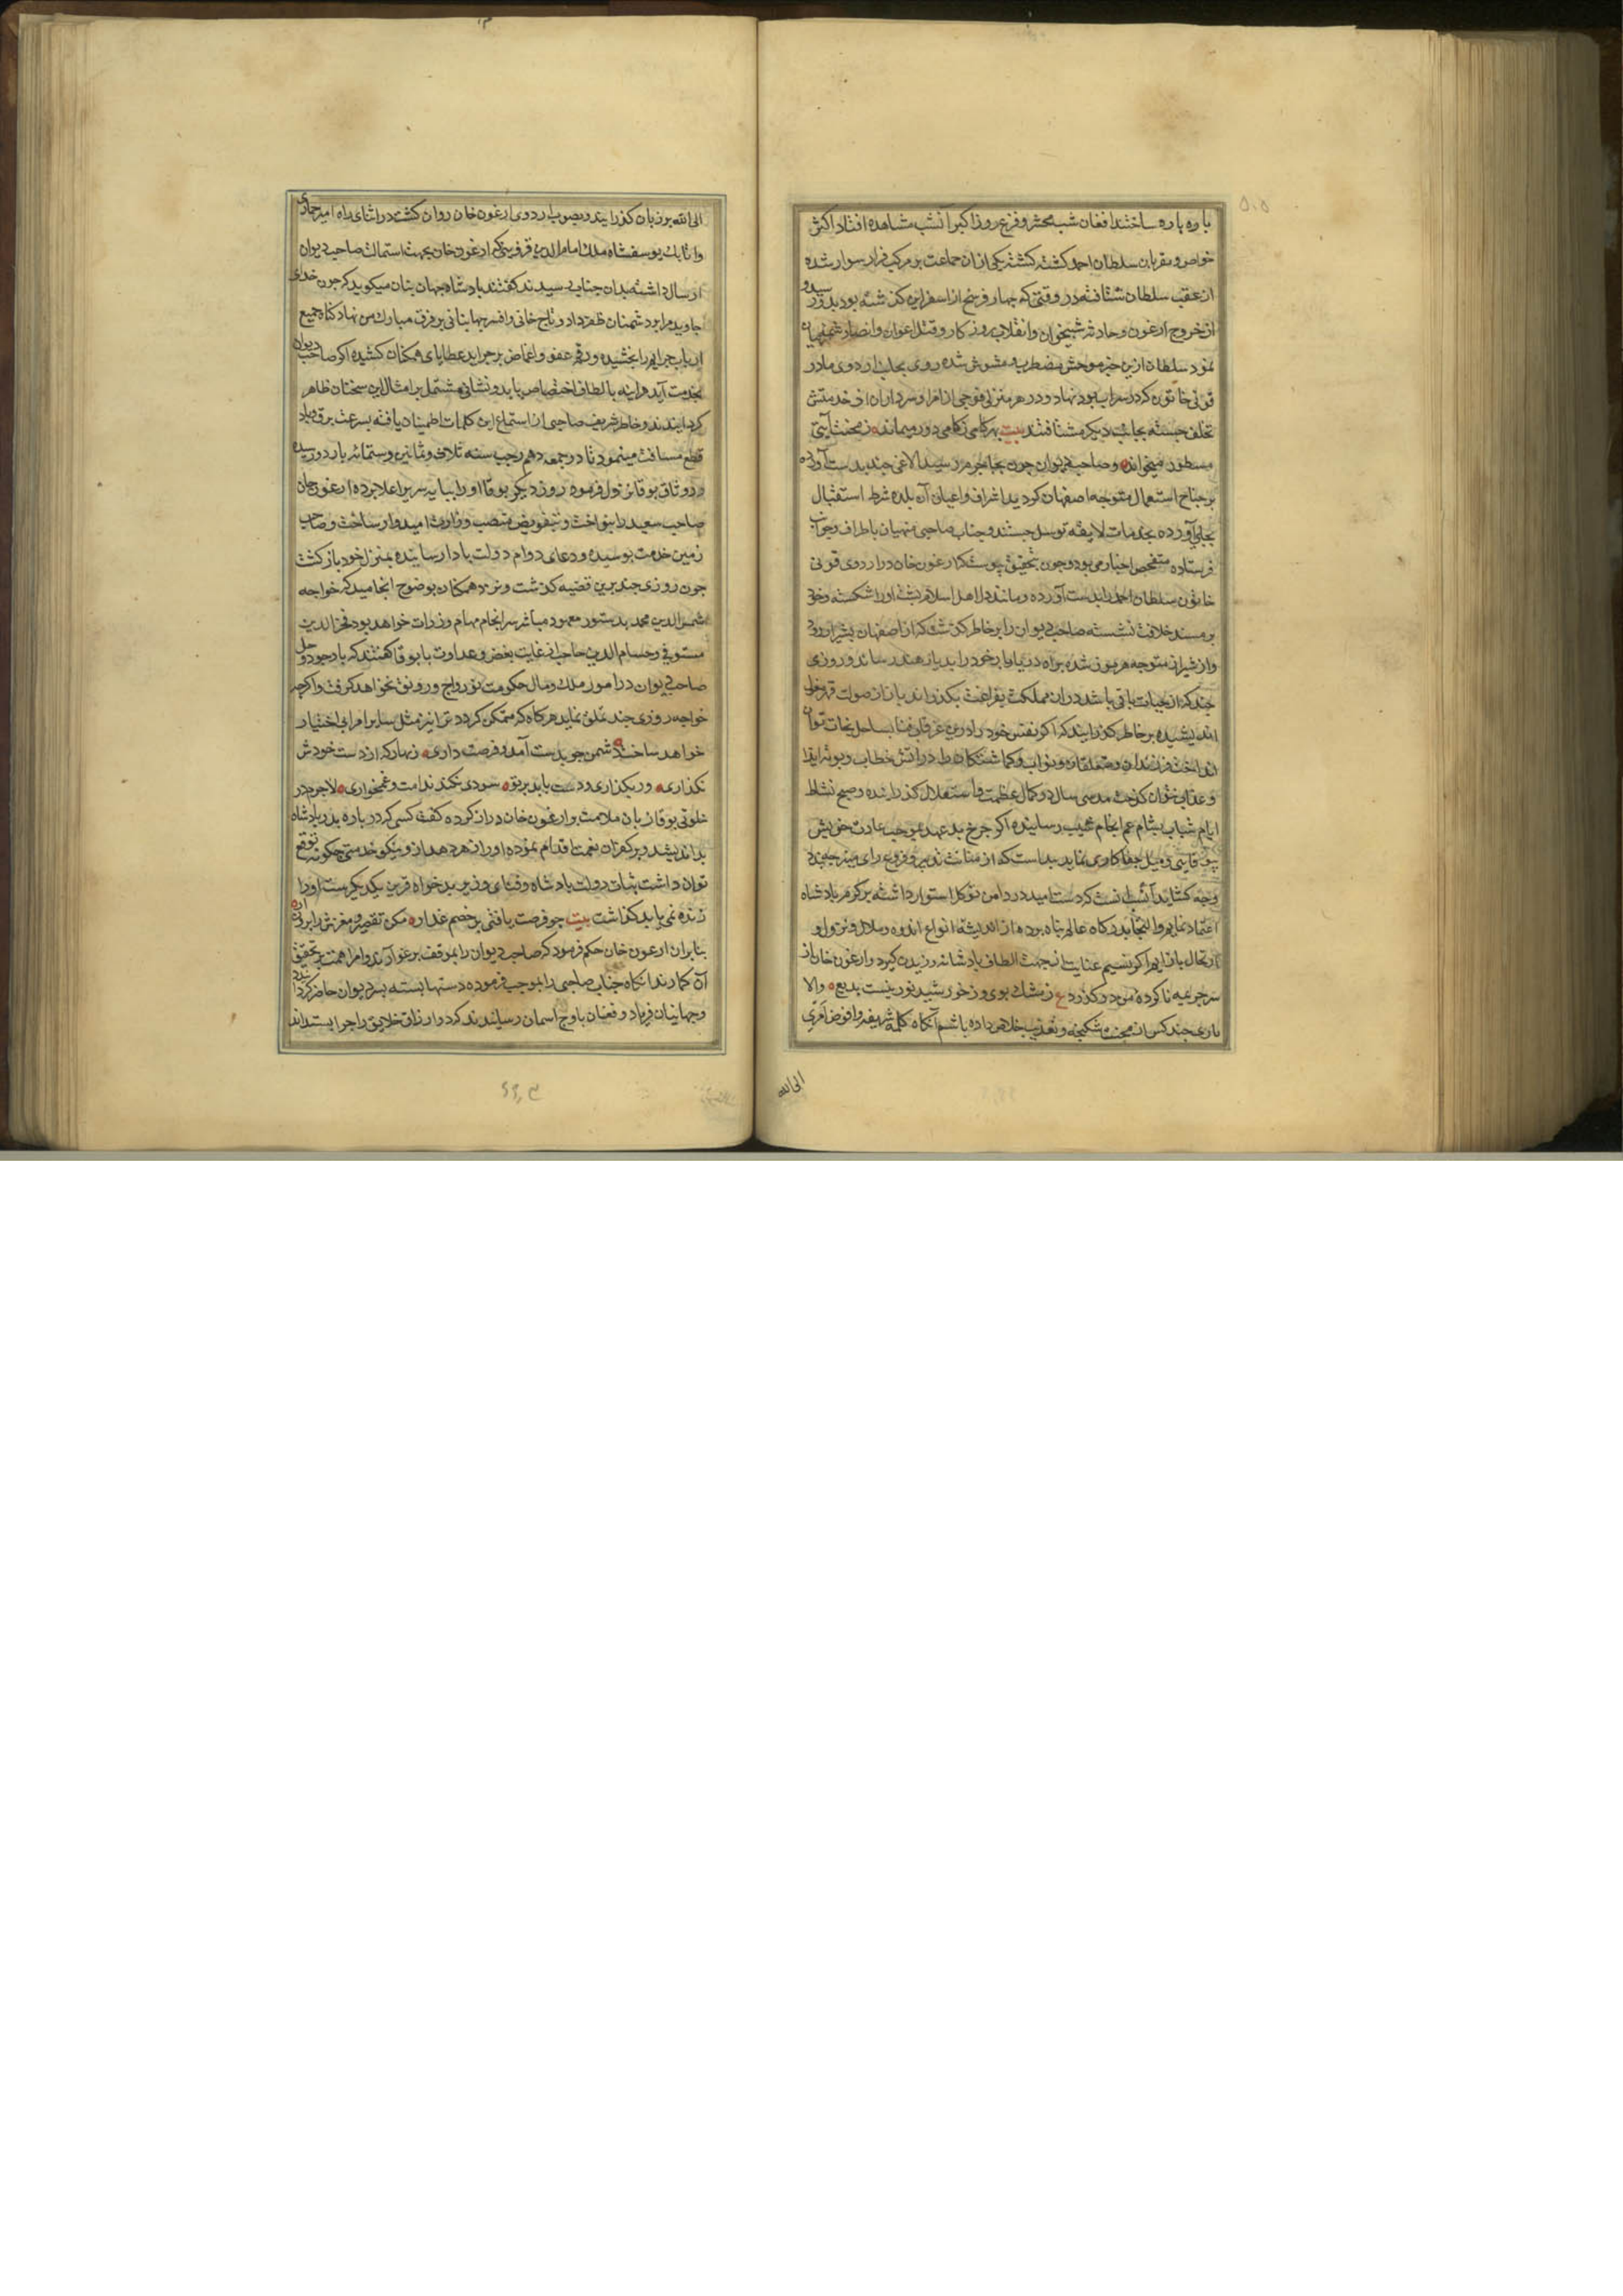 پاره پاره ساختند افغان شب محشر و فزع روز اکبر آنشب مشاهده افتاد اکثر
خواص و مقربان سلطان احمد کشته کشتند یکی ازان جماعت بر مرکب فرار سوار شده
از عقب سلطان شتافته در وقتی که چهار فرسخ از اسفراین کذشته بود بدو رسید و
از خروج ارغون و حادثه شبیخون و انقلاب روزکار و قتل اعوان و انصار
نمود سلطان ازین خبر موحش مضطرب و مشوش شده روی بجانب اردوی مادر
قوتی خاتون که در سراب بود نهاد و در هر منزلی فوجی از امرا و سرداران از خدمتش
تخلف جسته بجانب دیکر می‌شتافتند بیت بهر کامی ز کامی دور می‌ماند ز محنت آیتی
مسطور میخواند و صاحب دیوان چون بجاجرم رسید الاغی چند بدست آورده
بر جناح استعجال متوجه اصفهان کردید اشراف و اعیان آن بلده شرط استقبال
بجای آورده بخدمات لایقه توسل جستند و جناب صاحبی منهیان باطراف و جوانب
فرستاده متفحص اخبار می‌بود و چون بتحقیق پیوست که ارغون خان در اردوی قوتی
خاتون سلطان احمد را بدست آورده و مانند دل اهل اسلام پشت او را شکسته و خود
بر مسند خلافت نشسته صاحب دیوان را بر خاطر کذشت که از اصفهان بشیراز رود
و از شیراز متوجه هرموز شده براه دریا وبار خود را بدیار هند رساند و روزی
چند که از حیات باقی باشد دران مملکت بفراغت بکذراند باز از صولت قهر مغول
اندیشیده بر خاطر کذرانید که اکر نفس خود را ازین غرقاب فنا بساحل نجات توان
انداخت فرزندان و متعلقان و نواب و کماشتکان را در آتش خطاب و بوته ایذا
و عذاب نتوان کذاشت مدت سی سال در کمال عظمت و استقلال کذرانیده و صبح نشاط
ایام شباب بشام غم انجام مشیب رسانیده اکر چرخ بد عهد بموجب عادت خویش
جفاکاری نماید بداست که از متانت تدبیر و فروغ رای منیر چه بندد
و چه کشاید آنسب آنست که دست امید در دامن توکل استوار داشته بر کرم پادشاه
اعتماد نمایم و التجا بدرکاه عالم پناه برده از اندیشه انواع اندوه و ملال و نزول و
ارتحال باز رهم اکر نسیم عنایت از مهب الطاف پادشانه وزیدن کیرد و ارغون خان از
سر جریمه ناکرده من در کذرد ع ز مشک بوی و ز خورشید نور نیست بدیع و الا
باری چند کس از محنت شکنجه و تعذیب خلاص داده باشم آنکاه کلمه شریفه و افوض امری
الی الله
الی الله بر زبان کذرانیده بصوب اردوی ارغون خان روان کشت در اثنای راه امیر
و اتابک یوسفشاه و ملک امام الدین قزوینی که ارغون خان بجهت استمالت صاحب دیوان
ارسال داشته بدان جناب رسیدند کفتند پادشاه جهان بنان میکوید که چون خدای
جاوید مرا بر دشمنان ظفر داد و تاج خانی و افسر جهانبانی بر فرق مبارک من نهاد کناه جمیع
ارباب جرایم را بخشیده و رقم عفو و اغماض بر جراید خطایای همکنان کشیده اکر صاحب دیوان
بخدمت آید هر آینه بالطاف اختصاص یابد و نشانی مشتمل بر امثال این سخنان ظاهر
کردانیدند و خاطر شریف صاحبی از استماع این کلمات اطمینان یافته بسرعت برق و باد
قطع مسافت مینمود تا در جمعه دهم رجب سنه ثلاث و ثمانین و ستمائه باردو رسیده
در وثاق بوقا نزول فرمود و روز دیکر بوقا او را بپایه سریر اعلا برده ارغون خان
صاحب سعید را بنواخت و بتفویض منصب وزارت امیدوار ساخت و صاحب
زمین خدمت بوسیده و دعای دوام دولت بادا رسانیده بمنزل خود باز کشت
چون روزی چند برین قضیه کذشت و نزد همکنان بوضوح انجامید که خواجه
شمس الدین محمد بدستور معهود مباشر سرانجام مهام وزارت خواهد بود فخر الدین
مستوفی و حسام الدین حاجب از غایت بغض و عداوت با بوقا کفتند که با وجود دخل
صاحب دیوان در امور ملک و مال حکومت تو رواج و رونق نخواهد کرفت و اکرچه
خواجه روزی چند تملق نماید هرکاه که متمکن کردد ترا نیز مثل سایر امرا بی اختیار
خواهد ساخت دشمن چو بدست آمد و فرصت داری زنهار که از دست خودش
نکذاری ور بکذاری و دست یابد بر تو سودی نکند ندامت و غمخواری لاجرم در
خلوتی بوقا زبان ملامت بر ارغون خان دراز کرده کفت کسی که در باره پدر پادشاه
بد اندیشد و بر کفران نعمت اقدام نموده او را زهر دهد از و نیکو خدمتی چکونه توقع
توان داشت ثبات دولت پادشاه و فنای وزیر بدخواه قرین یکدیکرست او را
زنده نمی باید کذاشت بیت چو فرصت یافتی بر خصم غداره مکن تقصیر و مغزش را بر آر
بنابران ارغون خان حکم فرمود که صاحب دیوان را بموقف یرغو آرند و امرا همت بر تحقیق
آن کمارند انکاه جناب صاحبی را بموجب فرموده دستها بسته بسر دیوان حاضر کردانیدند
و جهانیان فریاد و فغان باوج آسمان رسانیدند کرد وارزاق خلایق را جرا بستداند